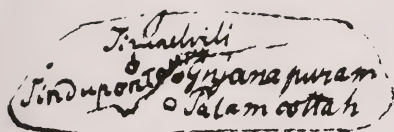 Tirunelvili
Sinduponto Gnyanapuram
Palamcottah